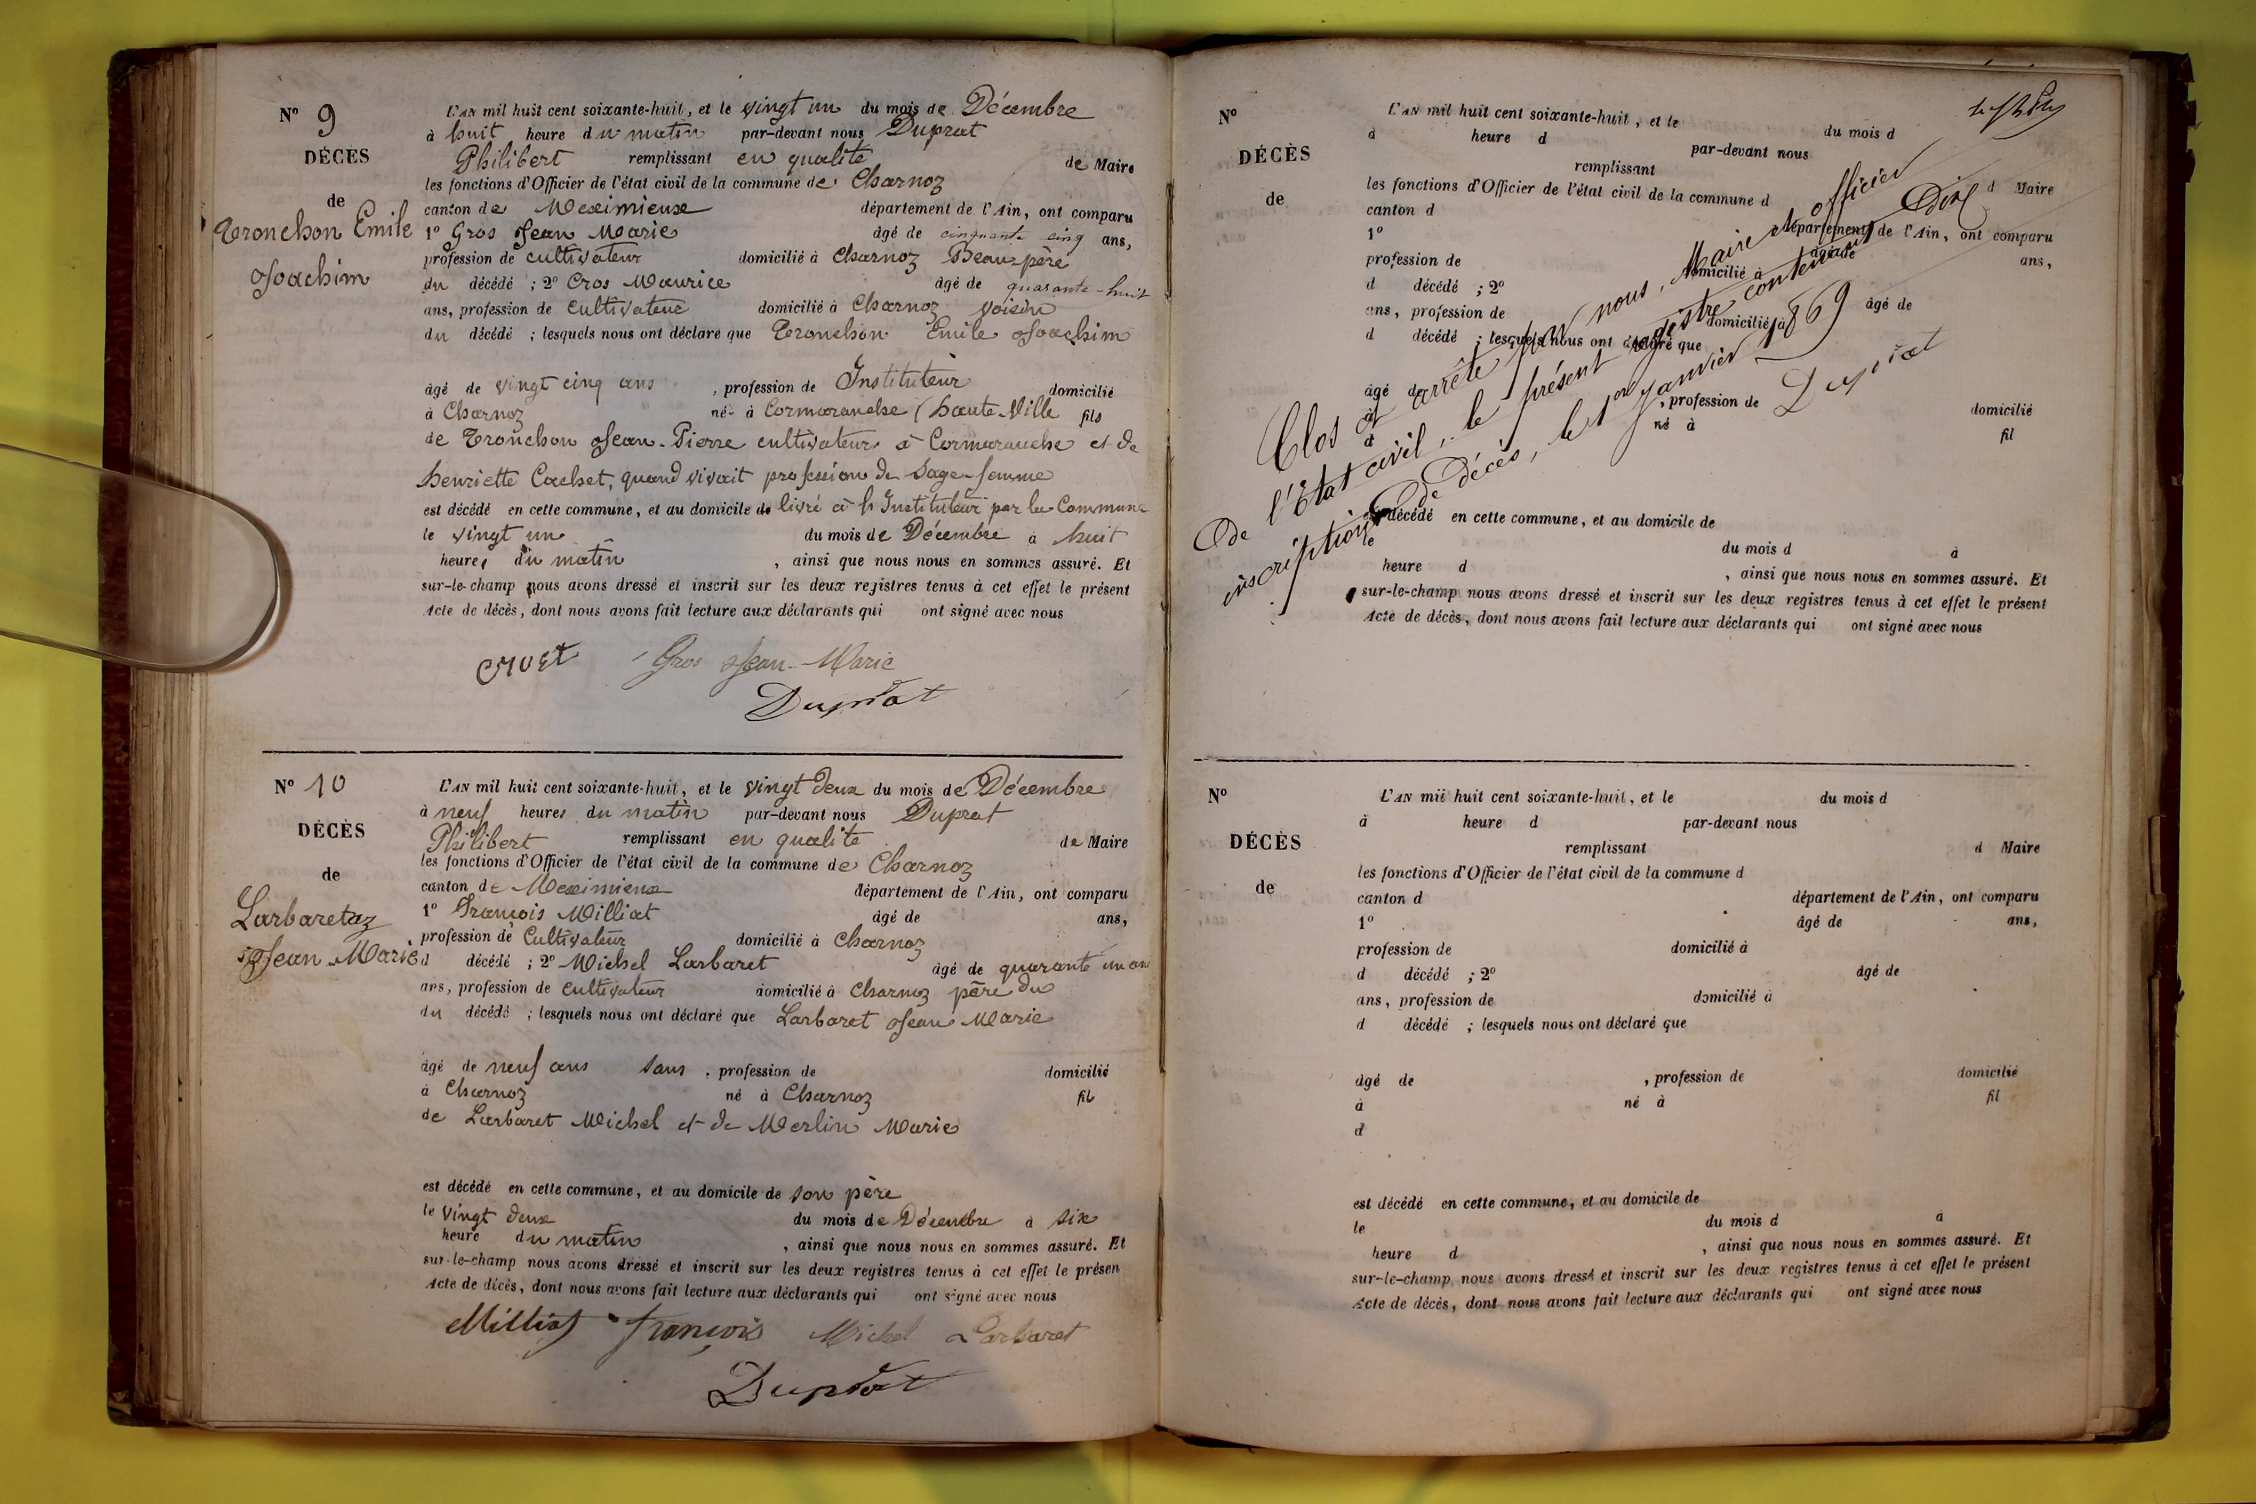 N° 9
DÉCES
de
Tronchon Emile
Joachim
L'AN mil huit cent soixante-huit, et le vingt un du mois de Décembre
à huit heure du matin par-devant nous Duprat
Philibert remplissant en qualité de Maire
les fonctions d'Officier de l'état civil de la commune de Charnoz
canton de Meximieux département de l'Ain, ont comparu
1° Gros Jean Marie âgé de cinquante cinq ans,
profession de cultivateur domicilié à Charnoz Beau-père
du décédé ; 2° Cros Maurice âgé de quarante-huit
ans, profession de cultivateur domicilié à Charnoz voisin
du décédé ; lesquels nous ont déclaré que Tronchon Emile Joachim
âgé de vingt cinq ans , profession de Instituteur domicilié
à Charnoz né à Cormaranche (haute Ville fils
de Tronchon Jean-Pierre cultivateur à Cormaranche et de
henriette Cachet, quand vivait profession de Sage-femme
est décédé en cette commune, et au domicile de livré à l'Instituteur par la Commune
le vingt un du mois de Décembre à huit
heure, du matin , ainsi que nous nous en sommes assuré. Et
sur-le-champ nous avons dressé et inscrit sur les deux registres tenus à cet effet le présent
Acte de décès, dont nous avons fait lecture aux déclarants qui ont signé avec nous
Gros Jean-Marie
Duprat
N° 10
DÉCÈS
de
Larbaretaz
Jean Marie
L'AN mil huit cent soixante-huit, et le vingt deux du mois de Décembre
à neuf heures du matin par-devant nous Duprat
Philibert remplissant en qualité de Maire
les fonctions d'Officier de l'état civil de la commune de Charnoz
canton de Meximieux département de l'Ain, ont comparu
1° François Milliat âgé de ans,
profession de Cultivateur domicilié à Charnoz
d décédé ; 2° Michel Larbaret âgé de quarante un an
ans, profession de cultivateur domicilié à Charnoz père du
du décédé ; lesquels nous ont déclaré que Larbaret Jean Marie
âgé de neuf ans sans , profession de domicilié
à Charnoz né à Charnoz fils
de Larbaret Michel et de Merlin Marie
est décédé en cette commune, et au domicile de son père
le vingt deux du mois de Décembre à six
heure du matin , ainsi que nous nous en sommes assuré. Et
sur-le-champ nous avons dressé et inscrit sur les deux registres tenus à cet effet le présen
Acte de décès, dont nous avons fait lecture aux déclarants qui ont signé avec nous
Milliat françois Michel Larbaret
Duprat
N°
DÉCÈS
de
L'AN mil huit cent soixante-huit, et le du mois d
à heure d par-devant nous
remplissant d Maire
les fonctions d'Officier de l'état civil de la commune d
canton d département de l'Ain, ont comparu
1° âgé de ans,
profession de domicilié à
d décédé ; 2° âgé de
ans, profession de domicilié à
d décédé ; lesquels nous ont déclaré que
âgé de , profession de domicilié
à né à fil
d
est décédé en cette commune, et au domicile de
le du mois d à
heure d , ainsi que nous nous en sommes assuré. Et
sur-le-champ nous avons dressé et inscrit sur les deux registres tenus à cet effet le présent
Acte de décès, dont nous avons fait lecture aux déclarants qui ont signé avec nous
Clos et arrêté par nous, Maire et officier
de l'Etat civil, le présent registre contenant Dix
inscriptions de décès, le 1er Janvier 1869
Duprat
N°
DÉCÈS
de
L'AN mil huit cent soixante-huit, et le du mois d
à heure d par-devant nous
remplissant d Maire
les fonctions d'Officier de l'état civil de la commune d
canton d département de l'Ain, ont comparu
1° âgé de ans,
profession de domicilié à
d décédé ; 2° âgé de
ans, profession de domicilié à
d décédé ; lesquels nous ont déclaré que
âgé de , profession de domicilié
à né à fil
d
est décédé en cette commune, et au domicile de
le du mois d à
heure d , ainsi que nous nous en sommes assuré. Et
sur-le-champ nous avons dressé et inscrit sur les deux registres tenus à cet effet le présent
Acte de décès, dont nous avons fait lecture aux déclarants qui ont signé avec nous